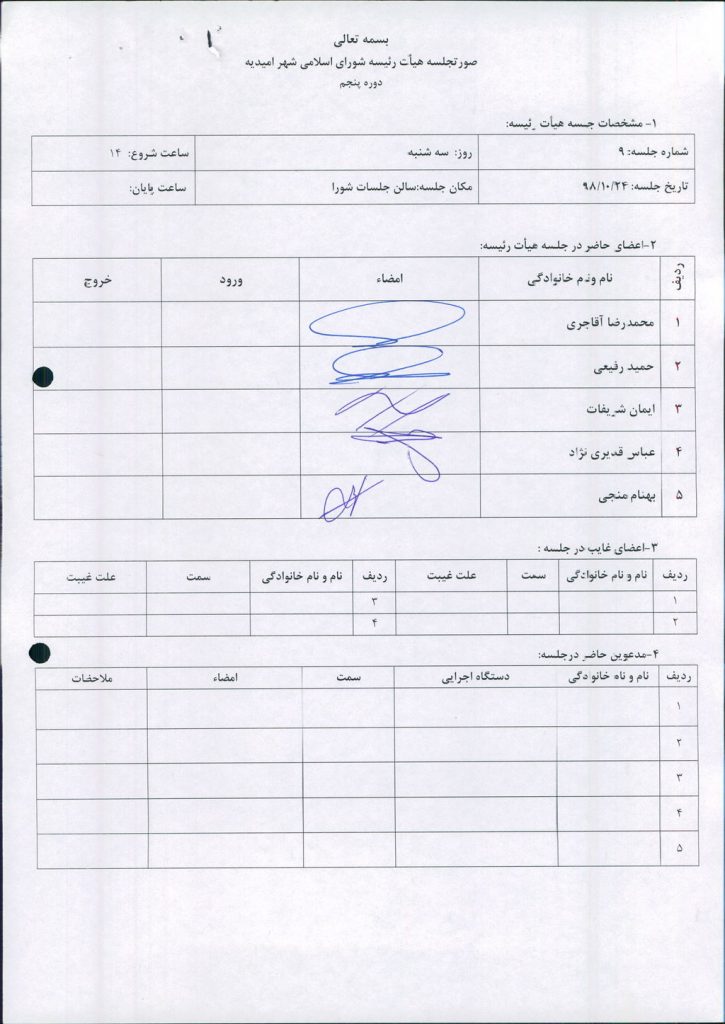 بسمه تعالی
صورتجلسه هیأت رئیسه شورای اسلامی شهر امیدیه
دوره پنجم
۱- مشخصات جلسه هیأت رئیسه:
شماره جلسه: ۹ روز: سه شنبه ساعت شروع: ۱۴
تاریخ جلسه: ۹۸/۱۰/۲۴ مکان جلسه:سالن جلسات شورا ساعت پایان:
۲-اعضای حاضر در جلسه هیأت رئیسه:
ردیف نام ونام خانوادگی امضاء ورود خروج
۱ محمدرضا آقاجری
۲ حمید رفیعی
۳ ایمان شریفات
۴ عباس قدیری نژاد
۵ بهنام منجی
۳-اعضای غایب در جلسه :
ردیف نام و نام خانوادگی سمت علت غیبت ردیف نام و نام خانوادگی سمت علت غیبت
۱ ۳
۲ ۴
۴-مدعوین حاضر درجلسه:
ردیف نام و نام خانوادگی دستگاه اجرایی سمت امضاء ملاحضات
۱
۲
۳
۴
۵